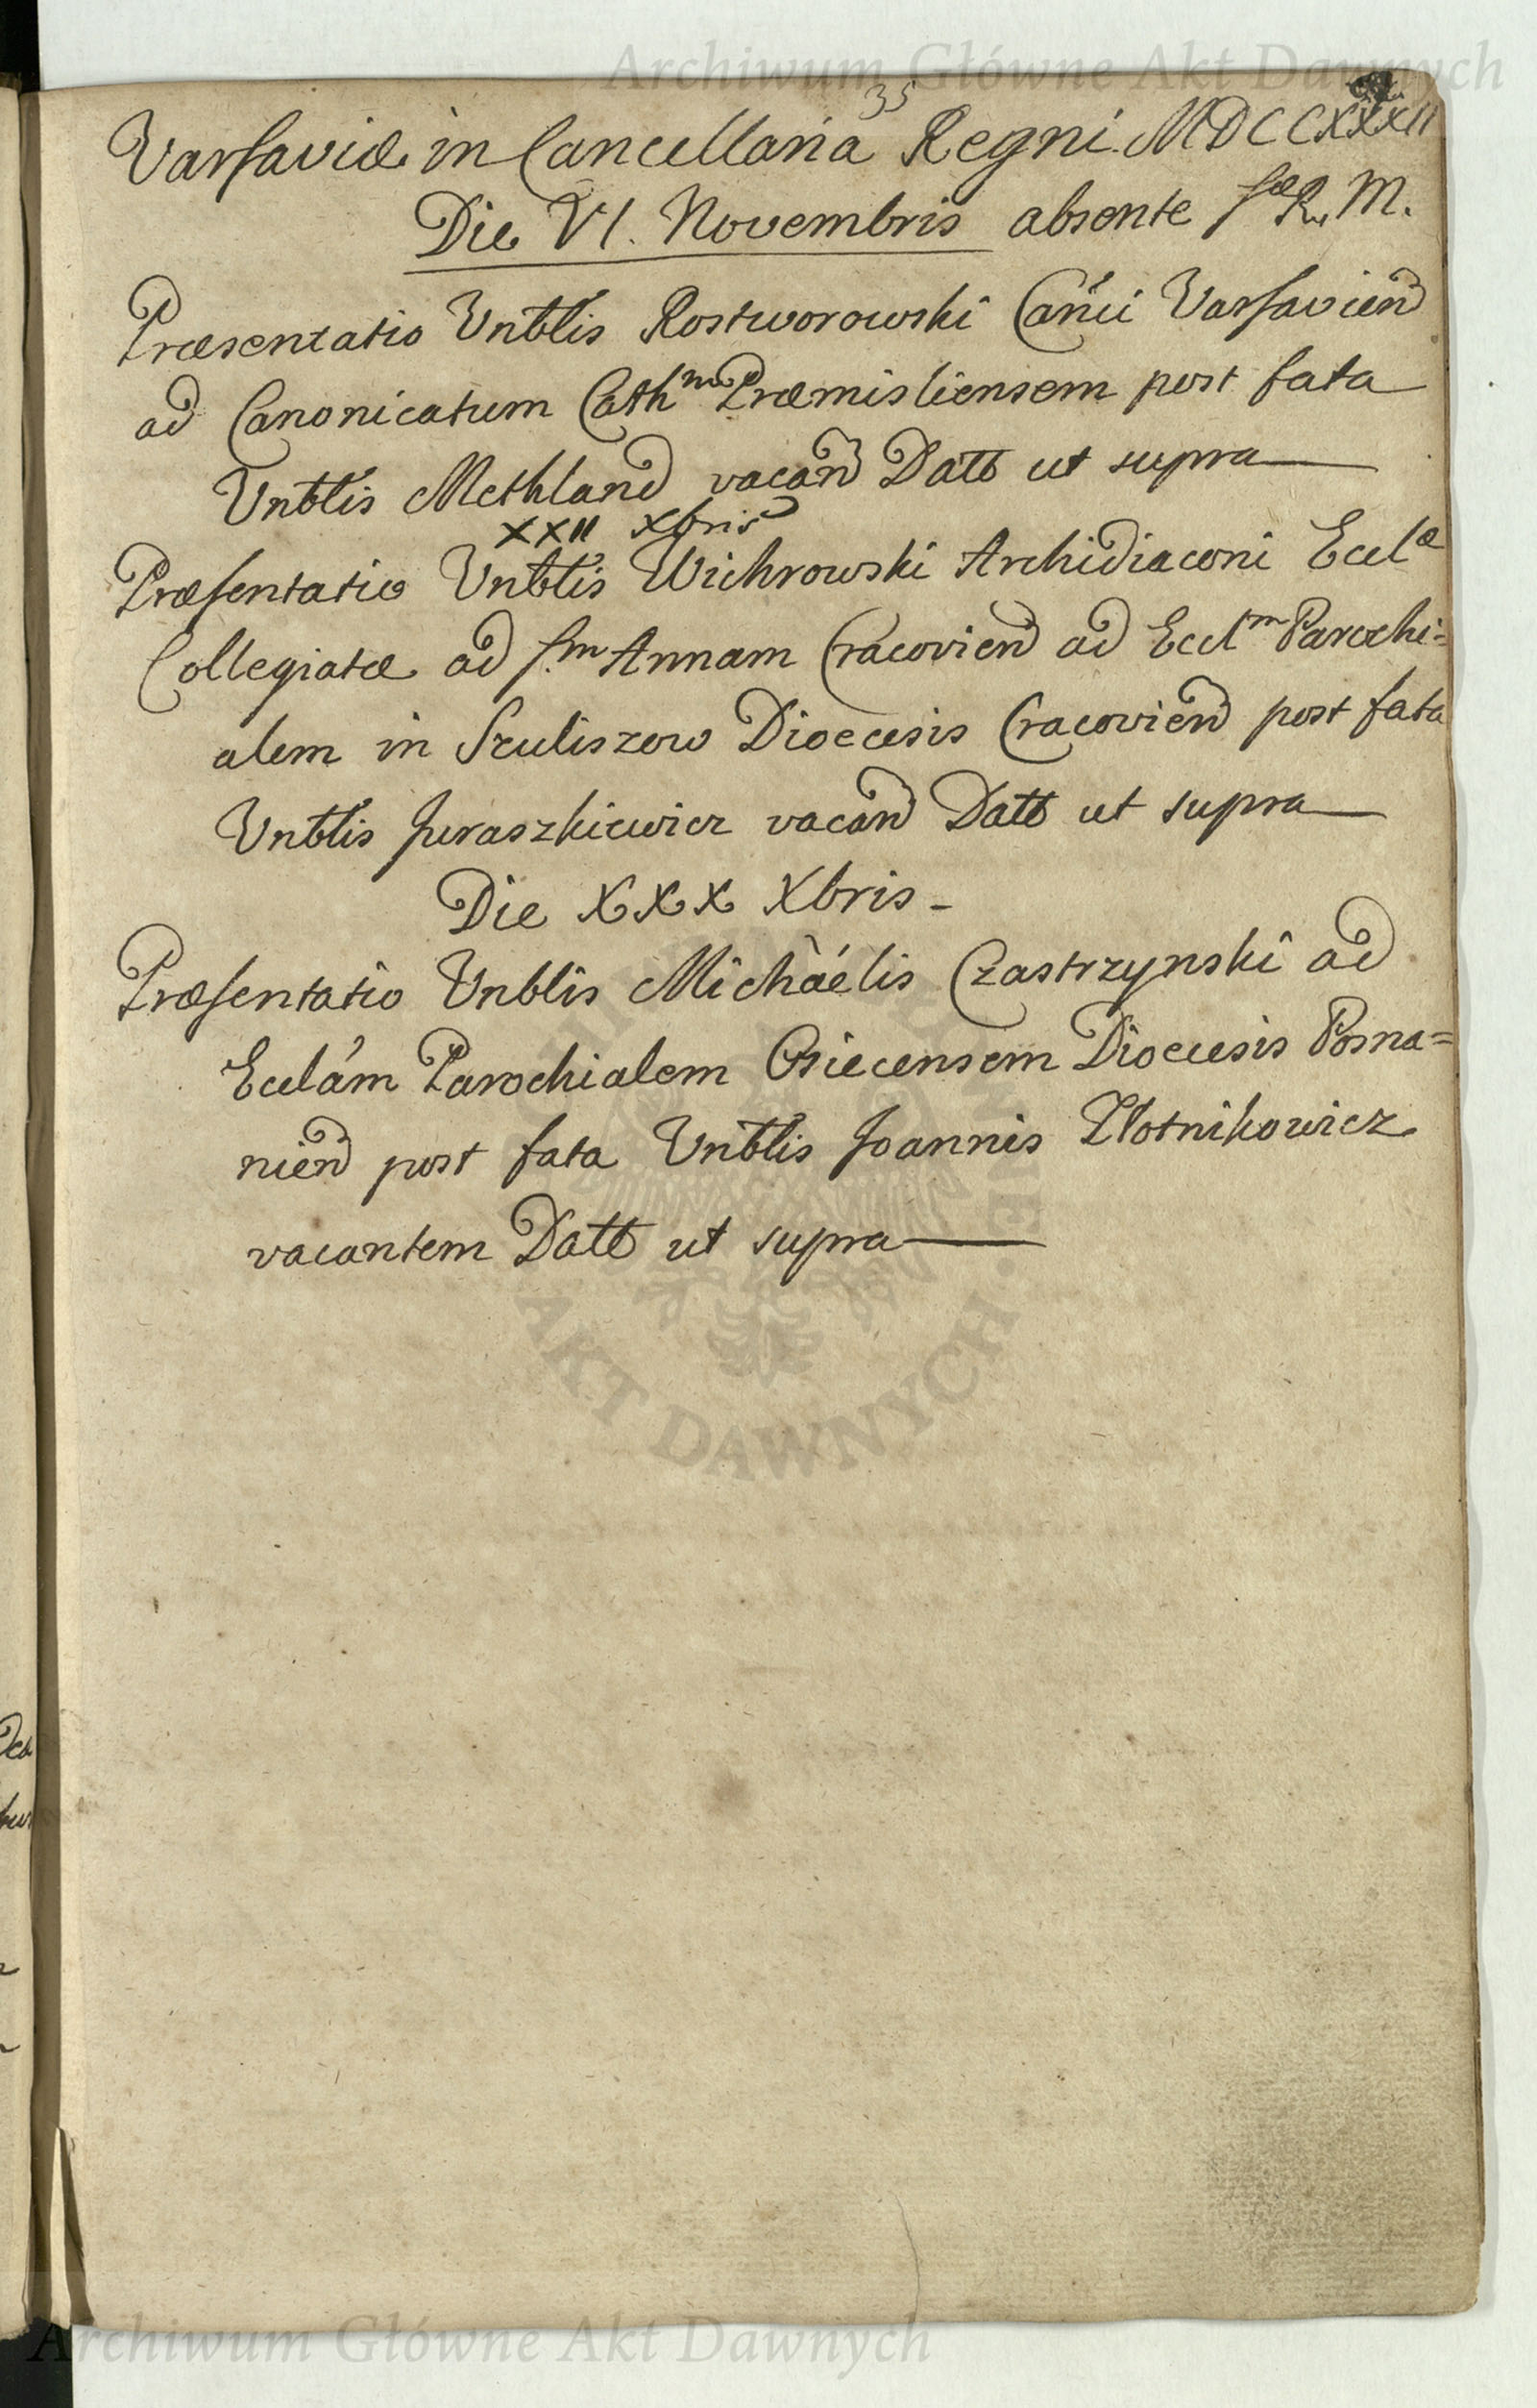 Archiwum Główne Akt Dawnych
35
Varsaviæ in Cancellaria Regni MDCCXXXII
Die VI. Novembris absente Sæ R. M.
Præsentatio Vnblis Rostworowski Canci Varsavien
ad Canonicatum Cathm Præmisliensem post fata
Vnblis Methland vacan Datt ut supra
XXII Xbris
Præsentatio Vnblis Wichrowski Archidiaconi Eccl&aelig;
Collegiatæ ad S.m Annam Cracovien ad Ecclm Parochi=
alem in Szuliszow Dioecesis Cracovien post fata
Vnblis Juraszkiewicz vacan Datt ut supra
Die XXX Xbris -
Præsentatio Vnblis Michaélis Czastrzynski ad
Ecclám Parochialem Osiecensem Dioecesis Posna=
nien post fata Vnblis Joannis Złotnikowicz
vacantem Datt ut supra
AKT DAWNYCH
Archiwum Główne Akt Dawnych